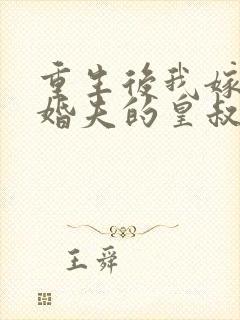 重生後我嫁
婚夫的皇叔
王舜